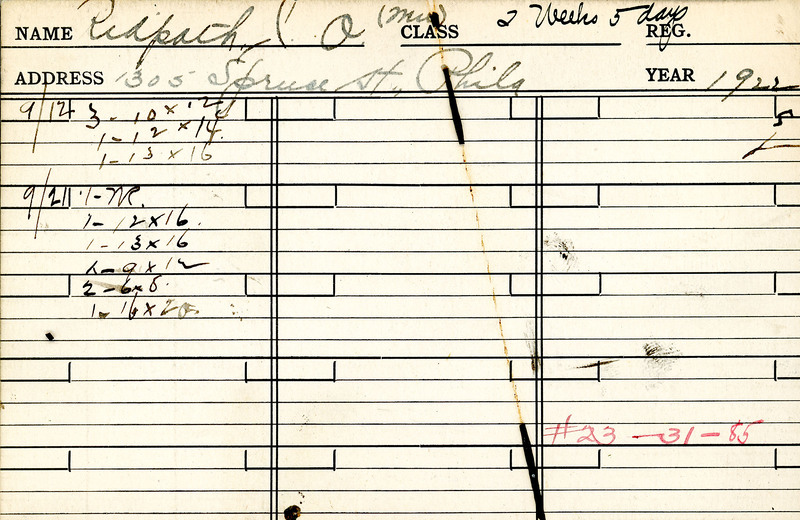 NAME Redpath, O (Miss) CLASS 2 Weeks 5 days REG.
ADDRESS 1305 Spruce St., Phila YEAR 1922
9/14 3-10x12
1-12x14
1-13x16
9/21 1-
1-12x16.
1-13x16
-9x12
2-6x8.
1-16x20
#23-31-85